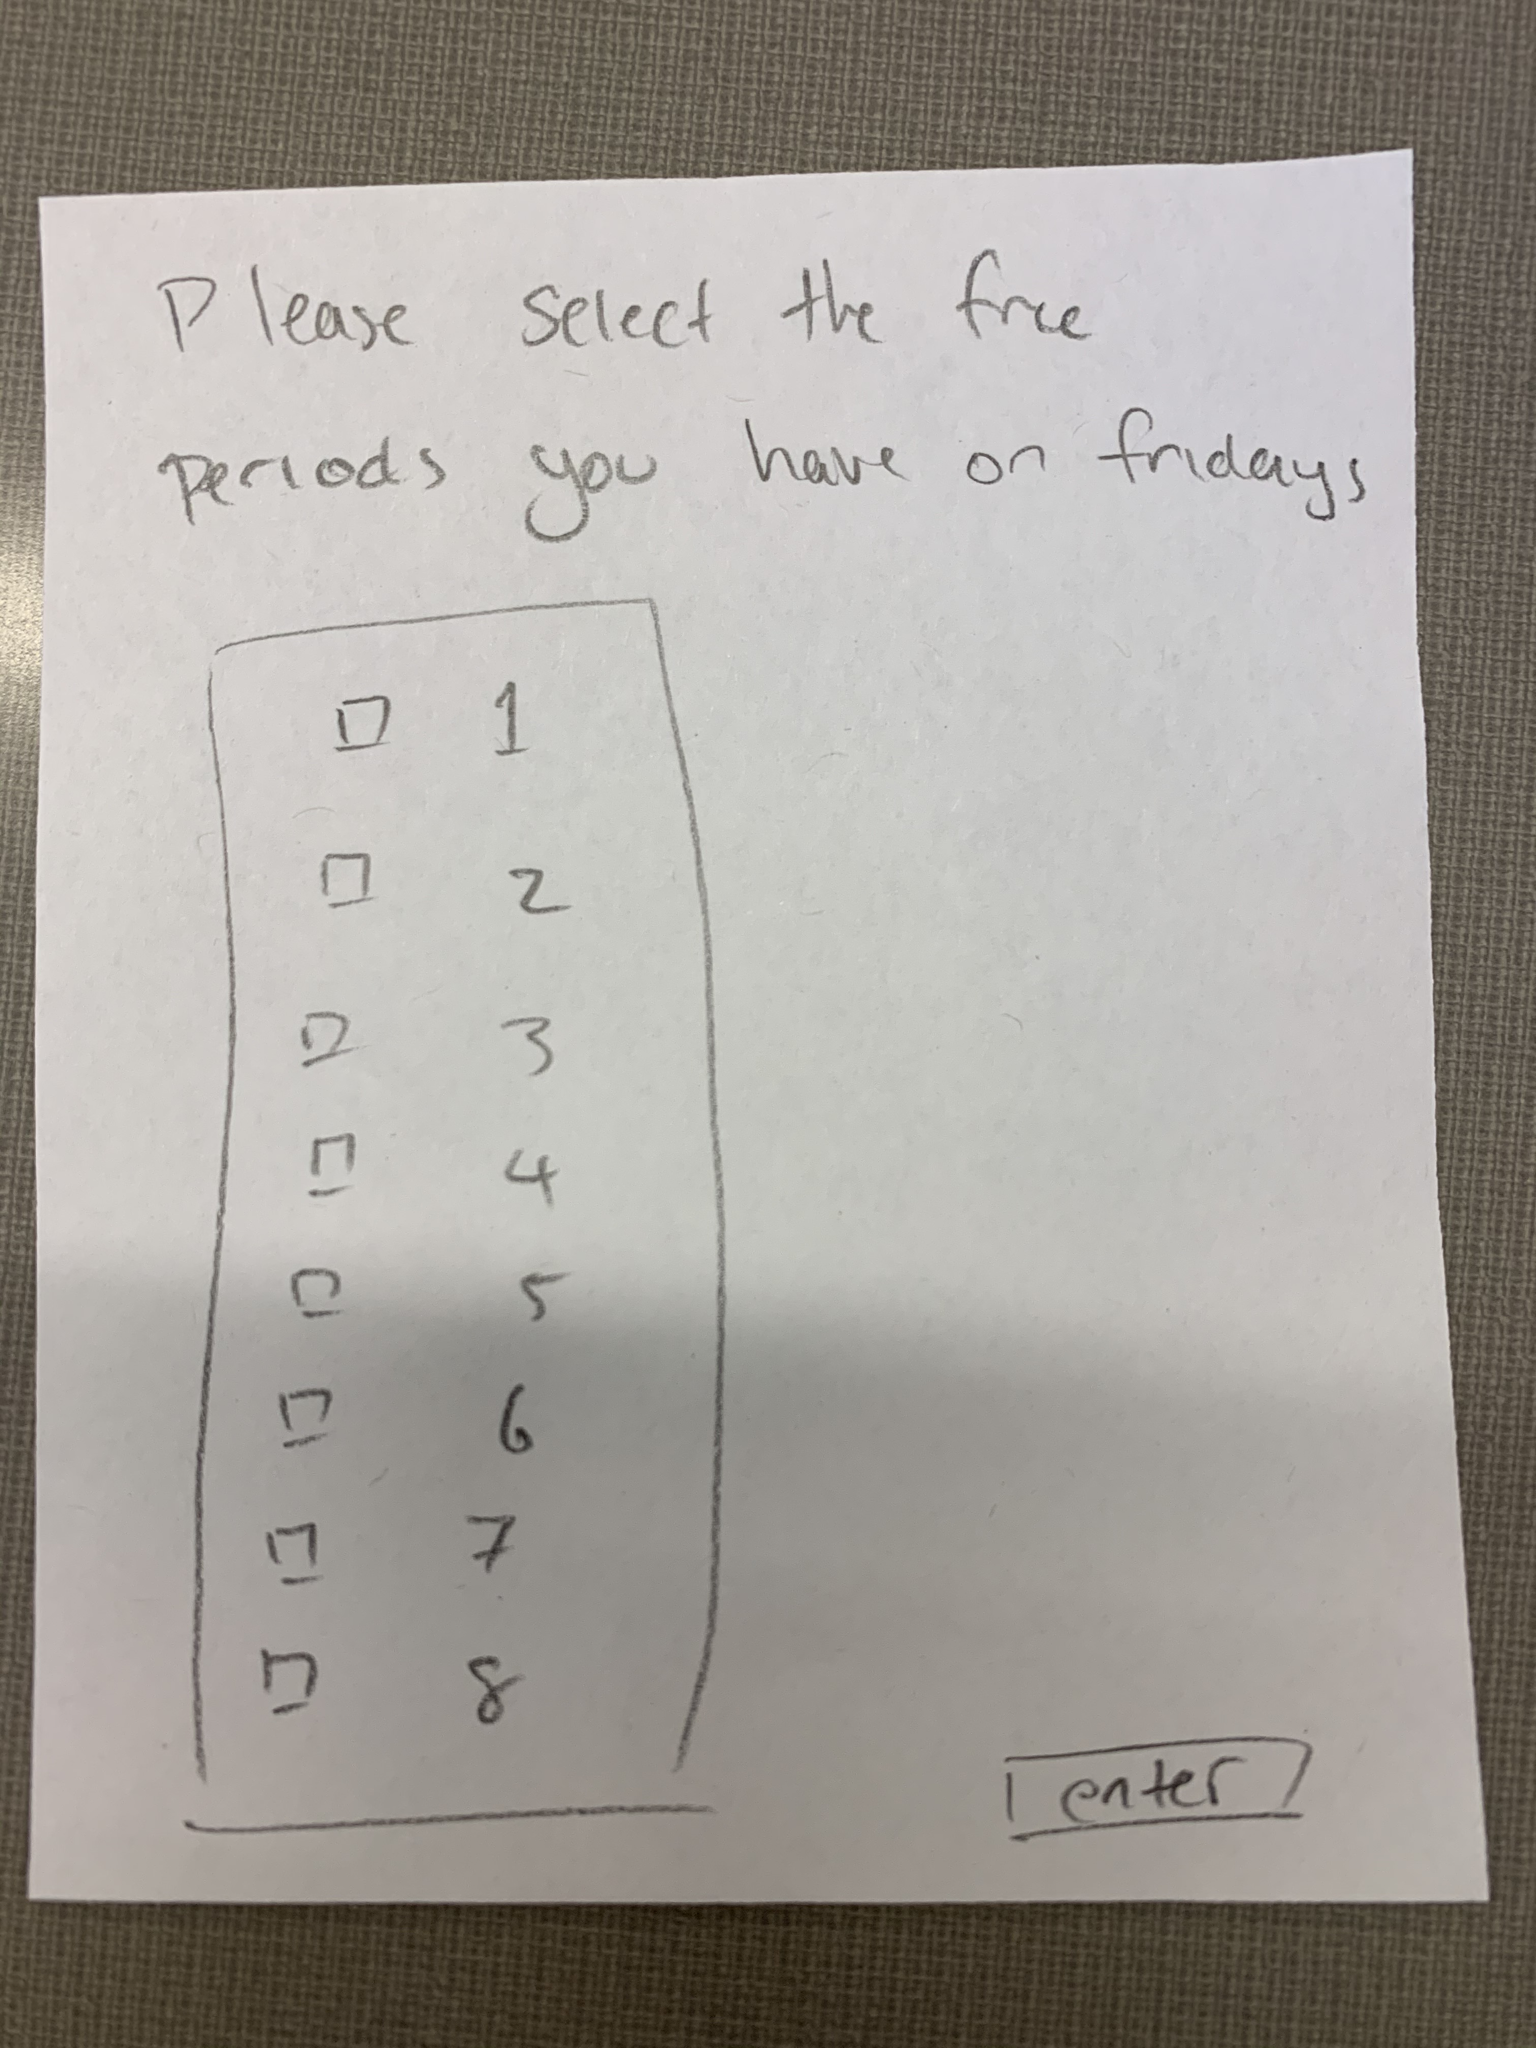 Please select the free
periods you have on fridays
1
2
3
4
5
6
7
8
enter